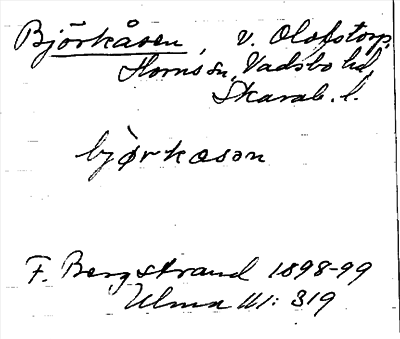 Björkåsen, v. Olofstorp,
Horns sn, Vadsbo hd,
Skarab. l.
bjòrkasan
F. Bergstrand 1898-99
Ulma 111: 319